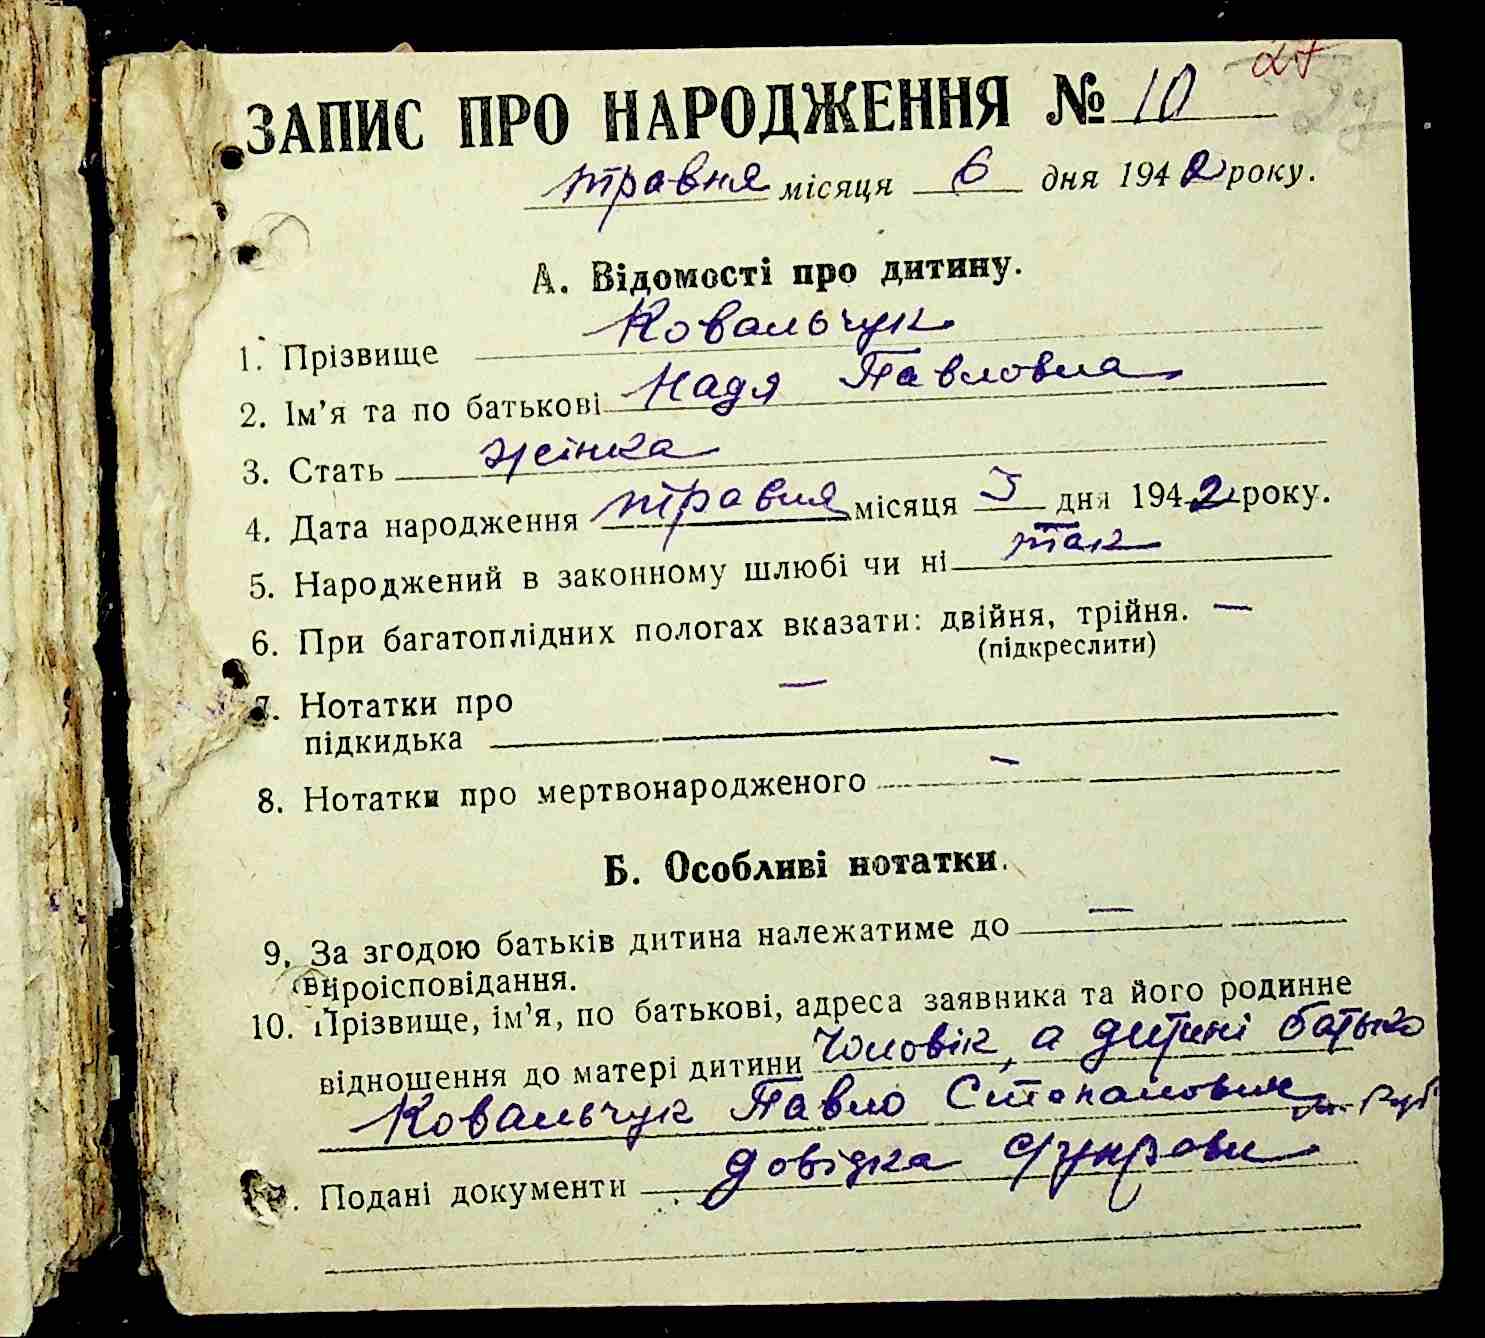 27
ЗАПИС ПРО НАРОДЖЕННЯ № 10
травня місяця 6 дня 1942 року.
А. Відомості про дитину.
1. Прізвище Ковальчук
2. Ім'я та по батькові Надя Павловна
3. Стать жінка
4. Дата народження травня місяця 5 дня 1942 року.
5. Народжений в законному шлюбі чи ні так
6. При багатоплідних пологах вказати: двійня, трійня. —
(підкреслити)
7. Нотатки про —
підкидька
8. Нотатки про мертвонародженого —
Б. Особливі нотатки.
9. За згодою батьків дитина належатиме до —
віроісповідання.
10. Прізвище, ім'я, по батькові, адреса заявника та його родинне
відношення до матері дитини Чоловік, а дитині батько
Ковальчук Павло Степанович
Подані документи довідка